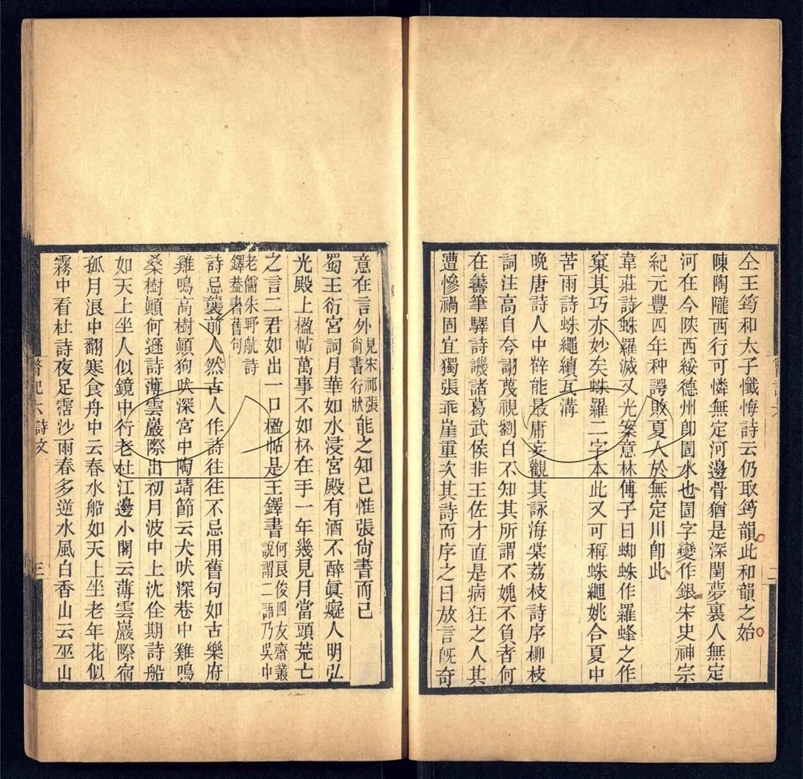 仝王筠和太子懺悔詩云仍取筠韻此和韻之始
陳陶隴西行可憐無定河邊骨猶是深閨夢裏人無定
河在今陝西綏德州卽固水也固字變作銀宋史神宗
紀元豐四年种諤敗夏人於無定川卽此
韋莊詩蛛羅滅又光案意林傅子曰蜘蛛作羅蜂之作
窠其巧亦妙矣蛛羅二字本此又可稱蛛繩姚合夏中
苦雨詩蛛繩續瓦溝
晚唐詩人中薛能最庸妄觀其詠海棠荔枝詩序柳枝
詞注高自夸詡蔑視劉白不知其所謂不媿不負者何
在籌筆驛詩譏諸葛武侯非王佐才直是病狂之人其
遭慘禍固宜獨張乖崖重次其詩而序之曰放言旣奇
意在言外見宋祁張尙書行狀能之知己惟張尙書而已
蜀王衍宮詞月華如水浸宮殿有酒不醉眞癡人明弘
光殿上楹帖萬事不如杯在手一年幾見月當頭荒亡
之言二君如出一口楹帖是王鐸書何良俊四友齋叢說謂二語乃吳中
老儒朱野航詩鐸葢書舊句
詩忌襲前人然古人作詩往往不忌用舊句如古樂府
雞鳴高樹顚狗吠深宮中陶靖節云犬吠深巷中雞鳴
桑樹顚何遜詩薄雲巖際出初月波中上沈佺期詩船
如天上坐人似鏡中行老杜江邊小閣云薄雲巖際宿
孤月浪中翻寒食舟中云春水船如天上坐老年花似
霧中看杜詩夜足霑沙雨春多逆水風白香山云巫山
瞥記六 詩文
三